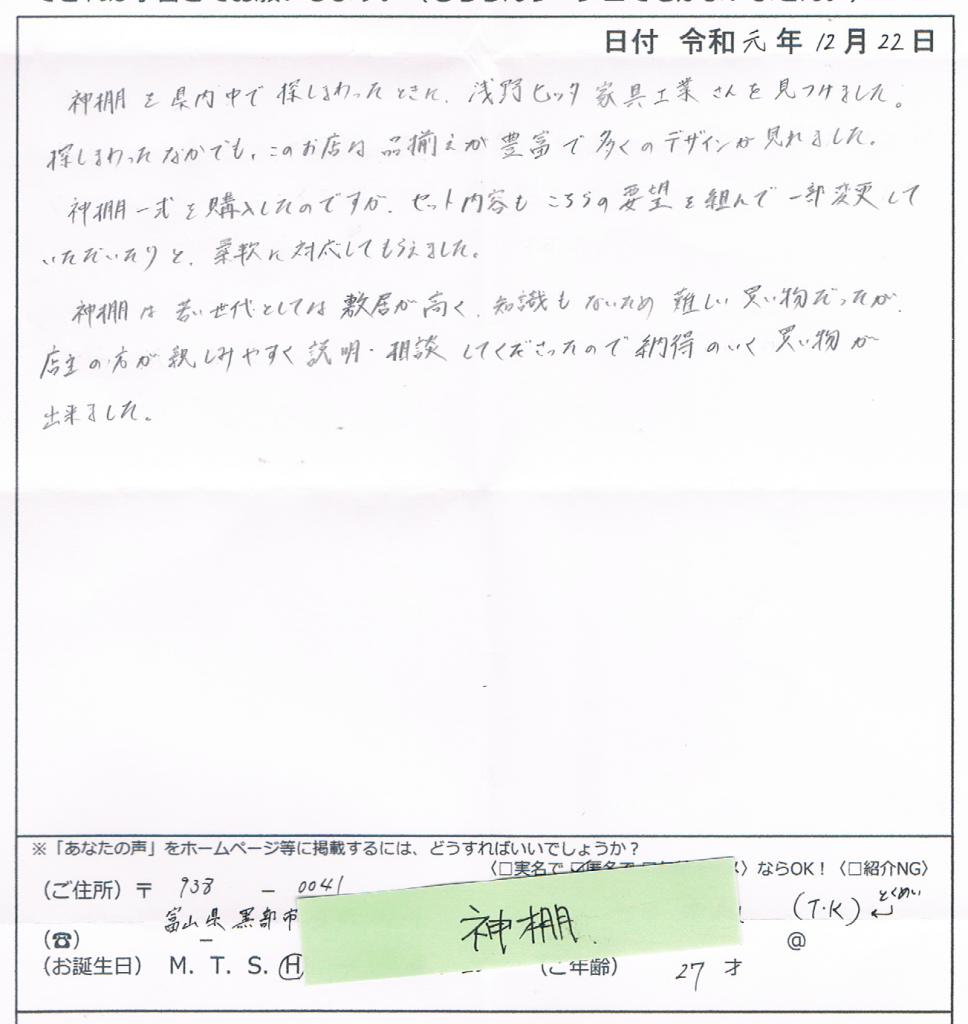 日付 令和元年12月22日
神棚を県内中で探しまわったときに、浅野ヒッタ家具工業さんを見つけました。
探しまわったなかでも、このお店は品揃えが豊富で多くのデザインが見れました。
神棚一式を購入したのですが、セット内容もこちらの要望を組んで一部変更して
いただいたりと、柔軟に対応してもらえました。
神棚は若い世代としては敷居が高く、知識もないため難しい買い物だったが、
店主の方が親しみやすく説明・相談してくださったので納得のいく買い物が
出来ました。
※「あなたの声」をホームページ等に掲載するには、どうすればいいでしょうか？
〈□実名で ☑匿名で 〉ならOK！〈□紹介NG〉
(ご住所) 〒 938 - 0041
富山県黒部市
(T・K) とくめい
(☎) - @
神棚
(お誕生日) M. T. S. H (ご年齢) 27 才